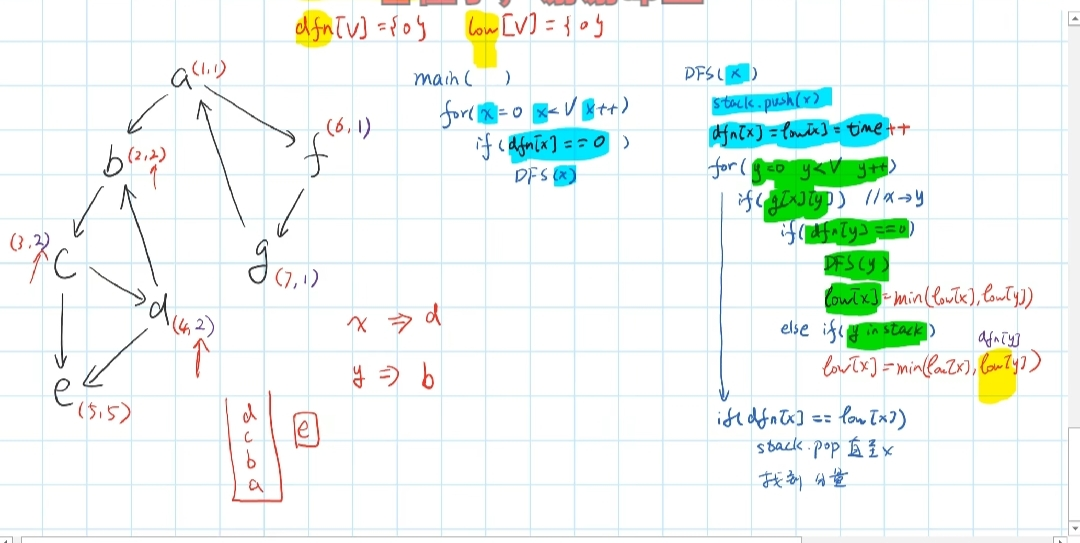 dfn[V]={0} low[V]={0}
a(1,1)
b(2,2)
f(6,1)
(3,2)
c
g(7,1)
d(4,2)
e(5,5)
main( )
for(x=0 x<V x++)
if(dfn[x]==0)
DFS(x)
x ⇒ d
y ⇒ b
d
c
b
a
e
DFS(x)
stack.push(x)
dfn[x]=low[x]=time++
for(y=0 y<V y++)
if(g[x][y]) //x→y
if(dfn[y]==0)
DFS(y)
low[x]=min(low[x],low[y])
else if(y in stack)
dfn[y]
low[x]=min(low[x],low[y])
if(dfn[x]==low[x])
stack.pop 直至x
找到 分量